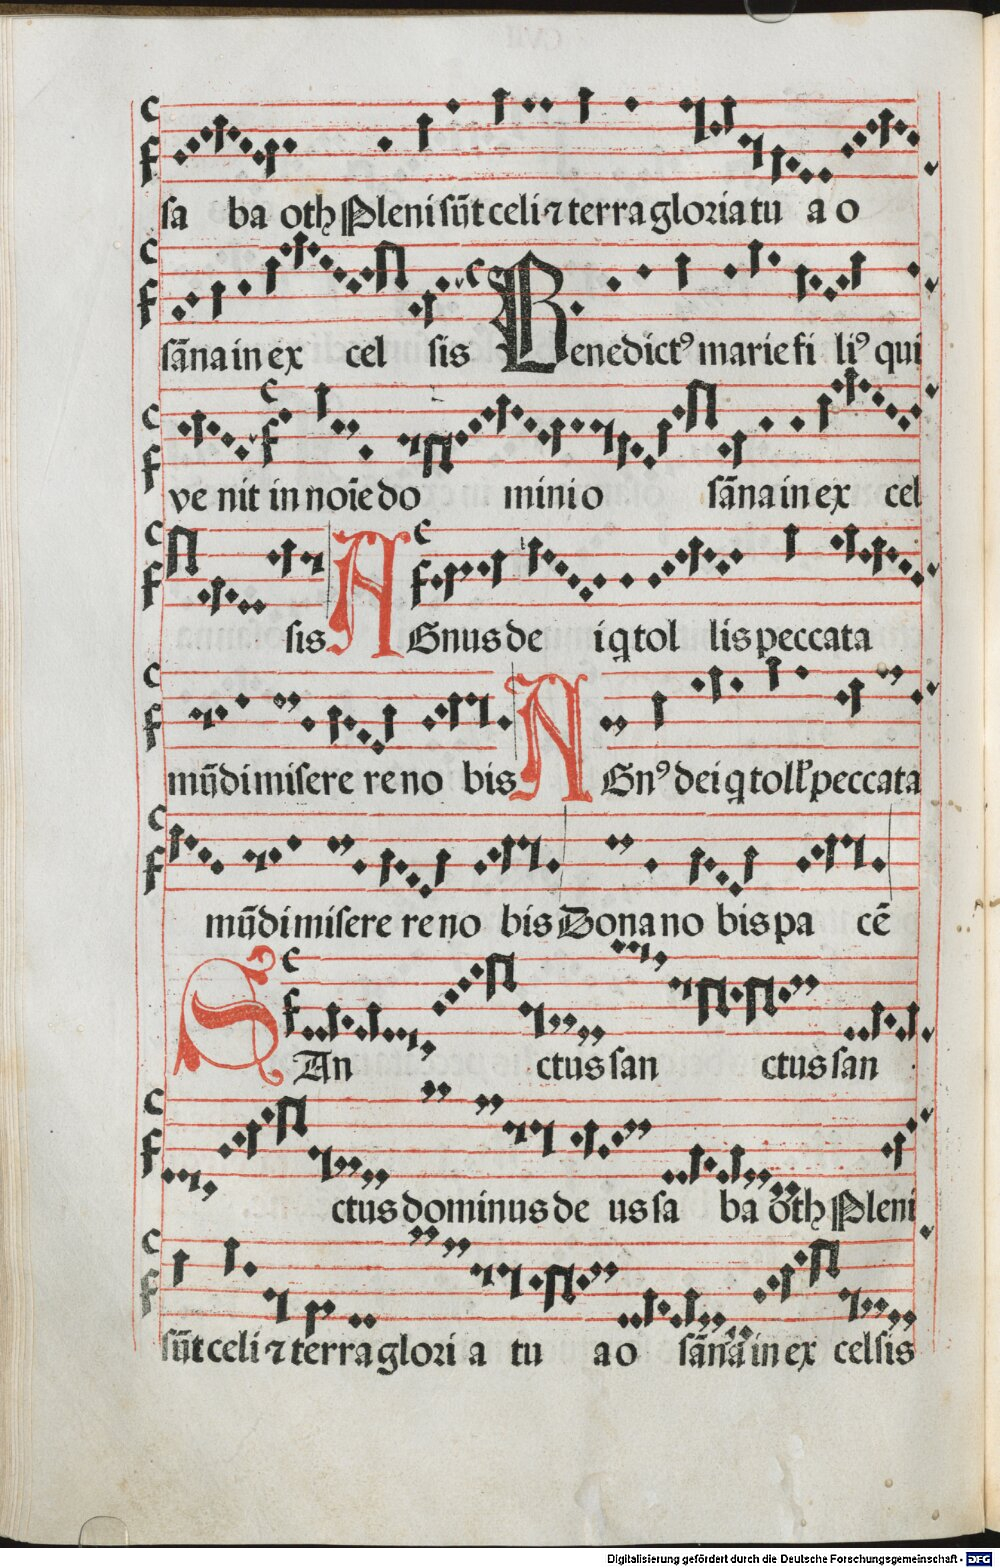 CVII
sa ba oth Pleni sūt celi ⁊ terra gloria tu a o
sāna in ex cel sis Benedictꝰ marie fi liꝰ qui
ve nit in noīe do mini o sāna in ex cel
sis AGnus de i q tol lis peccata
mūdi misere re no bis AGnꝰ dei q toll peccata
mūdi misere re no bis Dona no bis pa cē
SAn ctus san ctus san
ctus dominus de us sa ba oth Pleni
sūt celi ⁊ terra glori a tu a o sāna in ex celsis
Digitalisierung gefördert durch die Deutsche Forschungsgemeinschaft - DFG